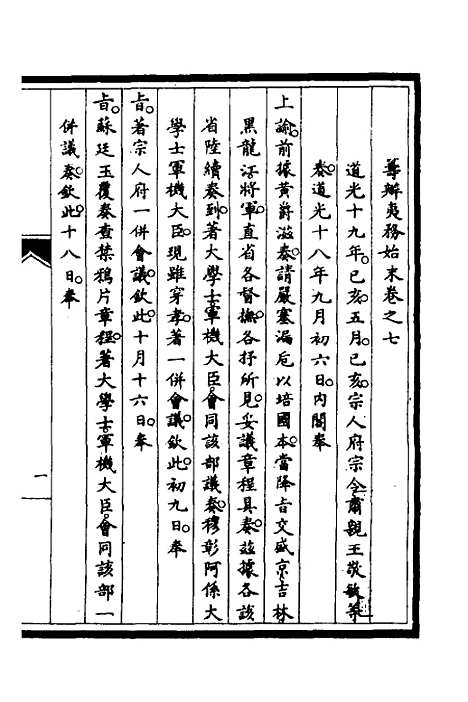 籌辦夷務始末卷之七
道光十九年。己亥。五月。己亥。宗人府宗令肅親王敬敏等
奏。道光十八年九月初六日。內閣奉
上諭。前據黃爵滋奏請嚴塞漏卮以培國本。當降旨交盛京吉林
黑龍江將軍。直省各督撫。各抒所見。妥議章程具奏。茲據各該
省陸續奏到。著大學士軍機大臣。會同該部議奏。穆彰阿係大
學士軍機大臣。現雖穿孝。著一併會議。欽此。初九日。奉
旨。著宗人府一併會議。欽此。十月十六日。奉
旨。蘇廷玉覆奏查禁鴉片章程。著大學士軍機大臣。會同該部一
併議奏。欽此。十八日。奉
一